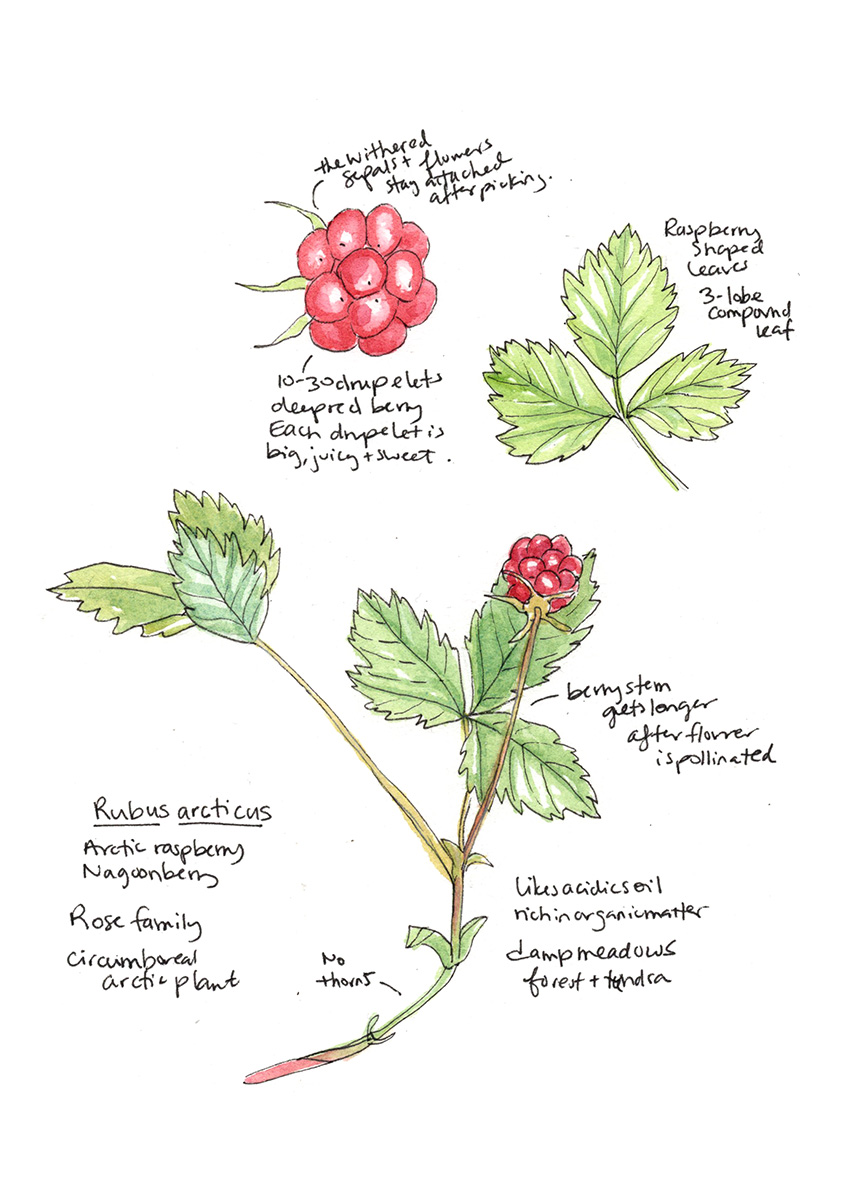 the withered
sepals + flowers
stay attached
after picking.
Raspberry
shaped
leaves
3-lobe
compound
leaf
10-30 drupelets
deep red berry
Each drupelet is
big, juicy + sweet.
berry stem
gets longer
after flower
is pollinated
Rubus arcticus
Arctic raspberry
Nagoonberry
Rose family
circumboreal
arctic plant
No
thorns
Likes acidic soil
rich in organic matter
damp meadows
forest + tundra